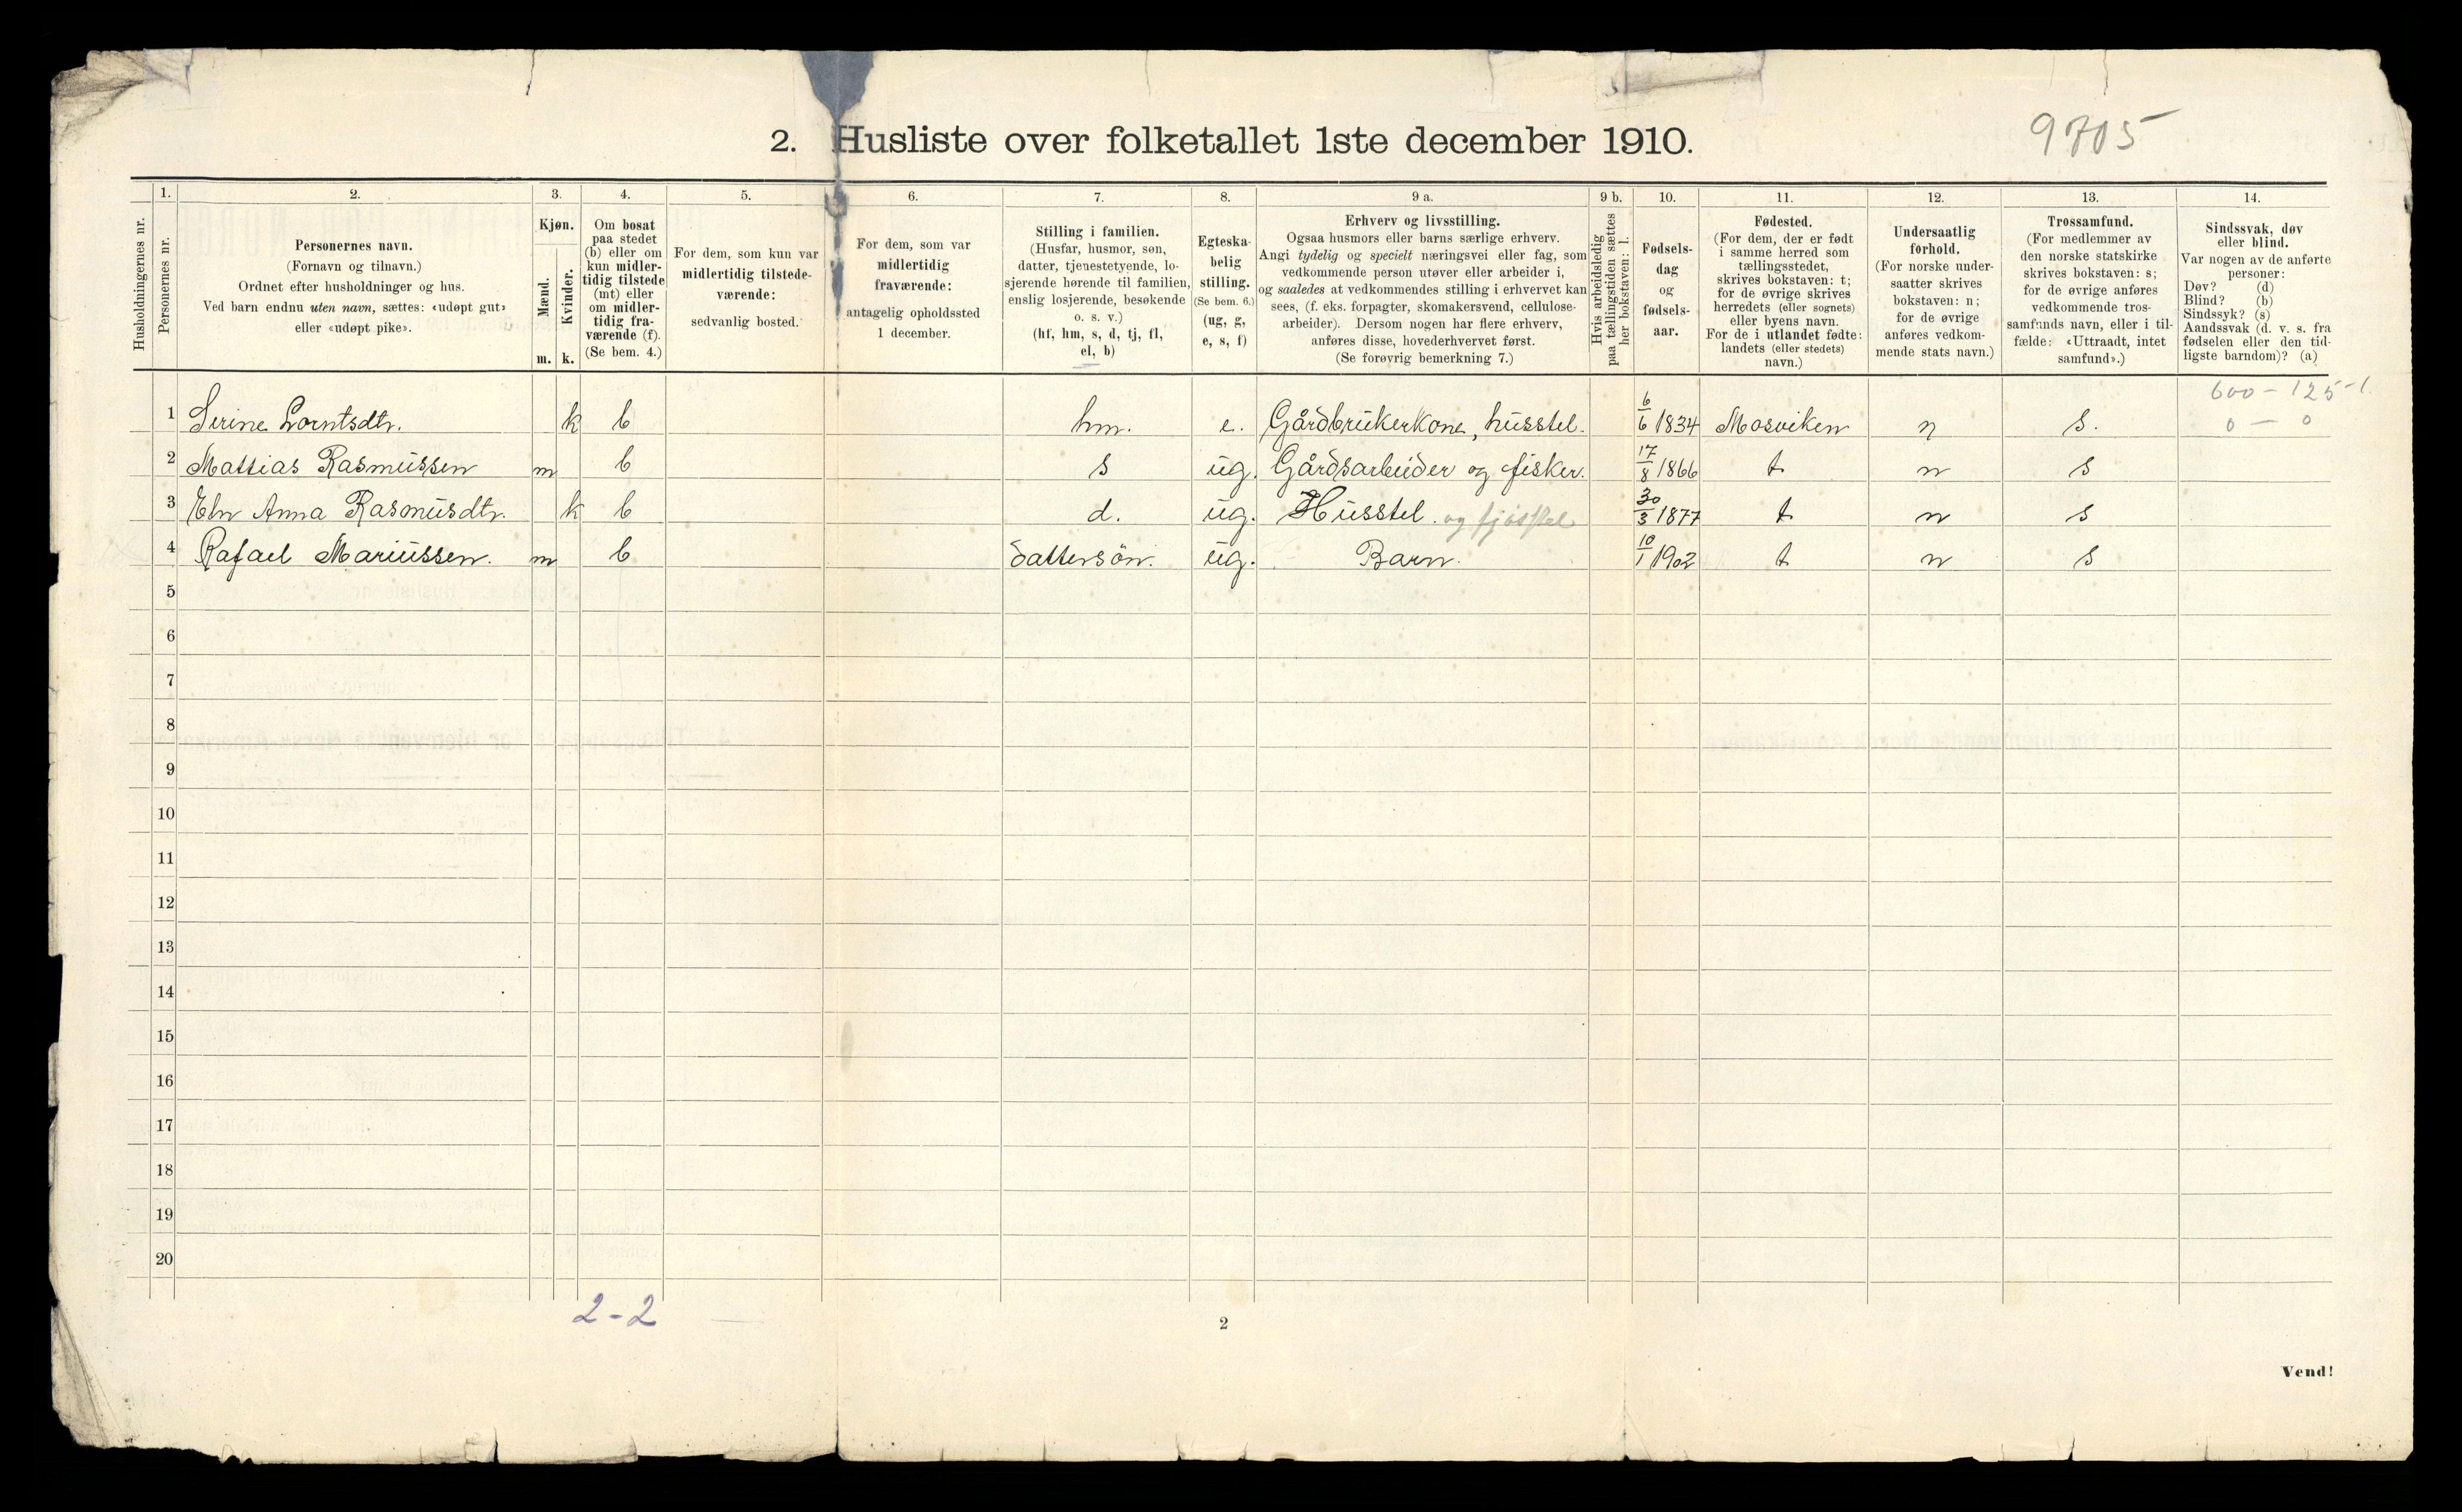 2. Husliste over folketallet 1ste december 1910.
9705
Husholdningernes nr.
1.
Personernes nr.
2.
Personernes navn.
(Fornavn og tilnavn.)
Ordnet efter husholdninger og hus.
Ved barn endnu uten navn, sættes: «udøpt gut»
eller «udøpt pike».
3.
Kjøn.
Mænd.
Kvinder.
m. k.
4.
Om bosat
paa stedet
(b) eller om
kun midler-
tidig tilstede
(mt) eller
om midler-
tidig fra-
værende (f).
(Se bem. 4.)
5.
For dem, som kun var
midlertidig tilstede-
værende:
sedvanlig bosted.
6.
For dem, som var
midlertidig
fraværende:
antagelig opholdssted
1 december.
7.
Stilling i familien.
(Husfar, husmor, søn,
datter, tjenestetyende, lo-
sjerende hørende til familien,
enslig losjerende, besøkende
o. s. v.)
(hf, hm, s, d, tj, fl,
el, b)
8.
Egteska-
belig
stilling.
(Se bem. 6.)
(ug, g,
e, s, f)
9 a.
Erhverv og livsstilling.
Ogsaa husmors eller barns særlige erhverv.
Angi tydelig og specielt næringsvei eller fag, som
vedkommende person utøver eller arbeider i,
og saaledes at vedkommendes stilling i erhvervet kan
sees, (f. eks. forpagter, skomakersvend, cellulose-
arbeider). Dersom nogen har flere erhverv,
anføres disse, hovederhvervet først.
(Se forøvrig bemerkning 7.)
9 b.
Hvis arbeidsledig
paa tællingstiden sættes
her bokstaven: l.
10.
Fødsels-
dag
og
fødsels-
aar.
11.
Fødested.
(For dem, der er født
i samme herred som
tællingsstedet,
skrives bokstaven: t;
for de øvrige skrives
herredets (eller sognets)
eller byens navn.
For de i utlandet fødte:
landets (eller stedets)
navn.)
12.
Undersaatlig
forhold.
(For norske under-
saatter skrives
bokstaven: n;
for de øvrige
anføres vedkom-
mende stats navn.)
13.
Trossamfund.
(For medlemmer av
den norske statskirke
skrives bokstaven: s;
for de øvrige anføres
vedkommende tros-
samfunds navn, eller i til-
fælde: «Uttraadt, intet
samfund».)
14.
Sindssvak, døv
eller blind.
Var nogen av de anførte
personer:
Døv? (d)
Blind? (b)
Sindssyk? (s)
Aandssvak (d. v. s. fra
fødselen eller den tid-
ligste barndom)? (a)
600 - 125 - 1
0 - 0
1 Serine Lorntsdtr. k b hm. e. Gårdbrukerkone, husstel. 6/6 1834 Mosviken n s.
2 Mattias Rasmussen m b s ug. Gårdsarbeider og fisker. 17/8 1866 t n s
3 Eln Anna Rasmusdtr. k b d. ug. Husstel. og fjøsstel 30/3 1877 t n s
4 Rafael Mariussen. m b dattersön. ug. Barn. 10/1 1902 t n s
5
6
7
8
9
10
11
12
13
14
15
16
17
18
19
20
2-2
2
Vend!